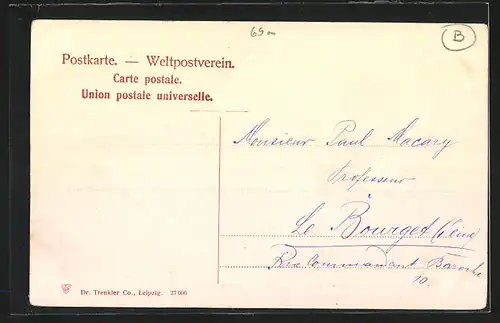 69 —
B
Postkarte. — Weltpostverein.
Carte postale.
Union postale universelle.
Monsieur Paul Macary
Professeur
à
Le Bourget (Seine)
Rue Commandant Baroche
10.
Dr. Trenkler Co., Leipzig. 27 606